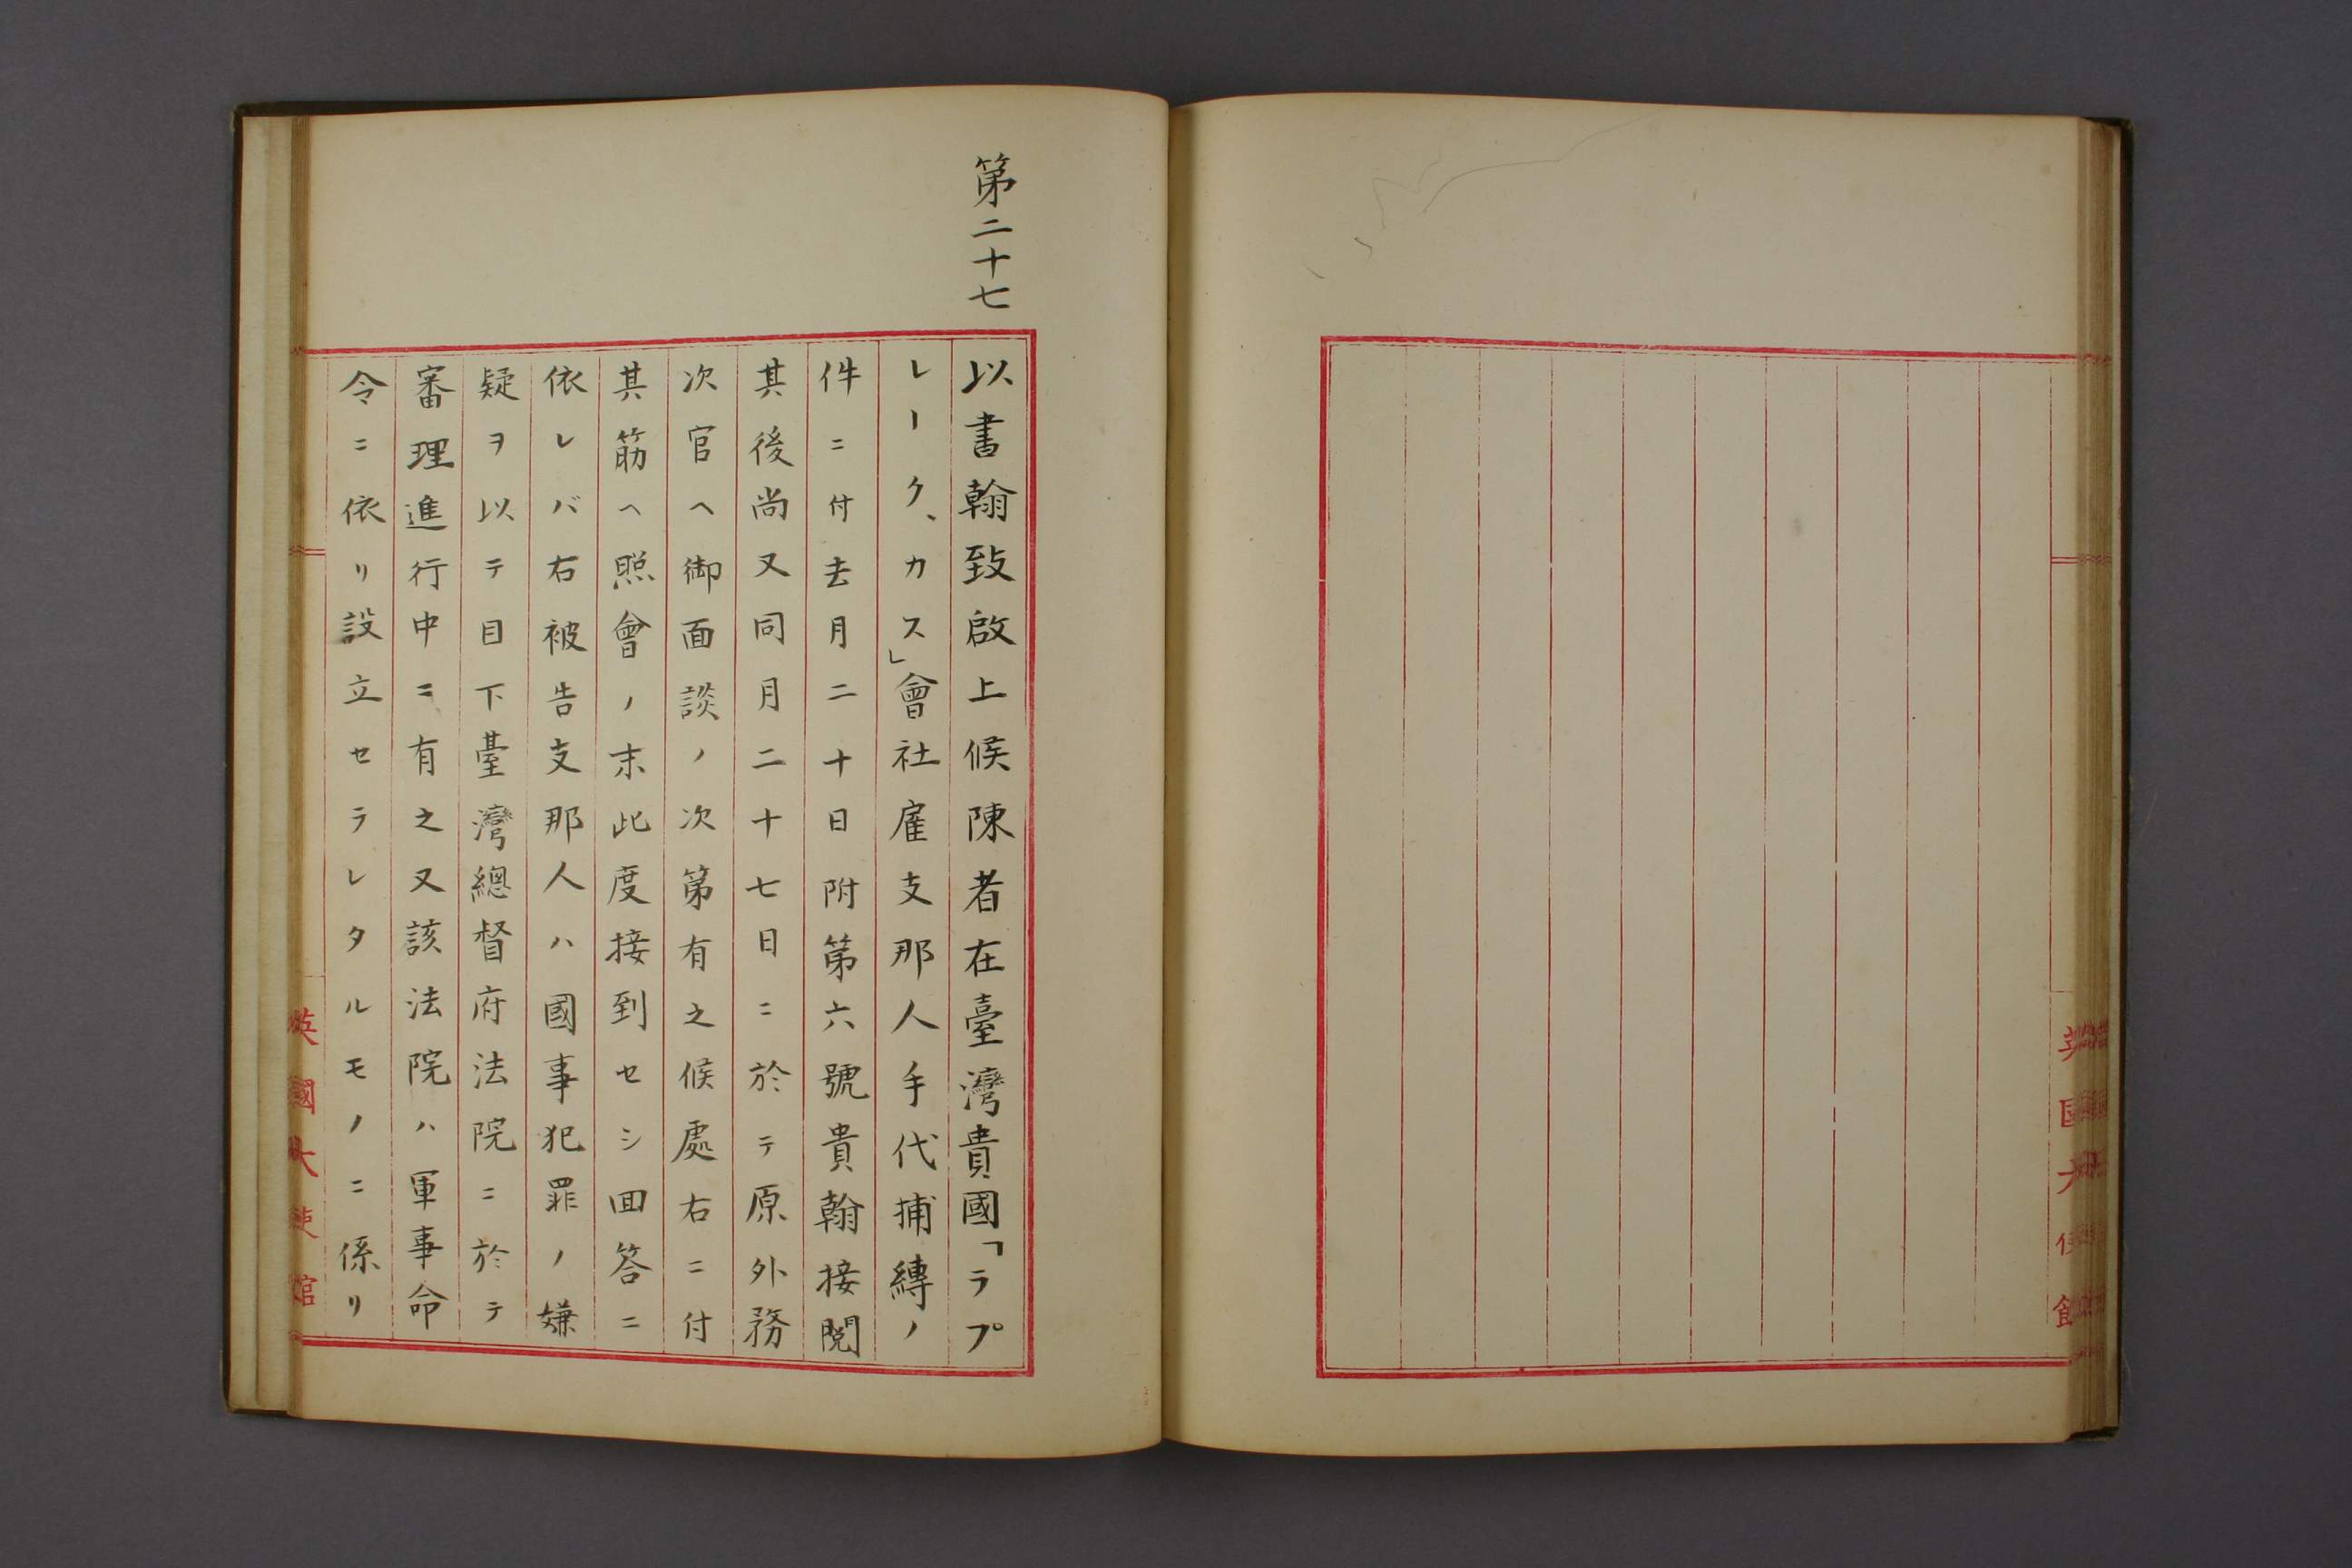 第二十七
以書翰致啟上候陳者在臺灣貴國「ラプ
レーク、カス」會社雇支那人手代捕縛ノ
件ニ付去月二十日附第六號貴翰接閲
其後尚又同月二十七日ニ於テ原外務
次官ヘ御面談ノ次第有之候處右ニ付
其筋ヘ照會ノ末此度接到セシ囬答ニ
依レバ右被告支那人ハ國事犯罪ノ嫌
疑ヲ以テ目下臺灣總督府法院ニ於テ
審理進行中ニ有之又該法院ハ軍事命
令ニ依リ設立セラレタルモノニ係リ
英國大使館
英國大使館